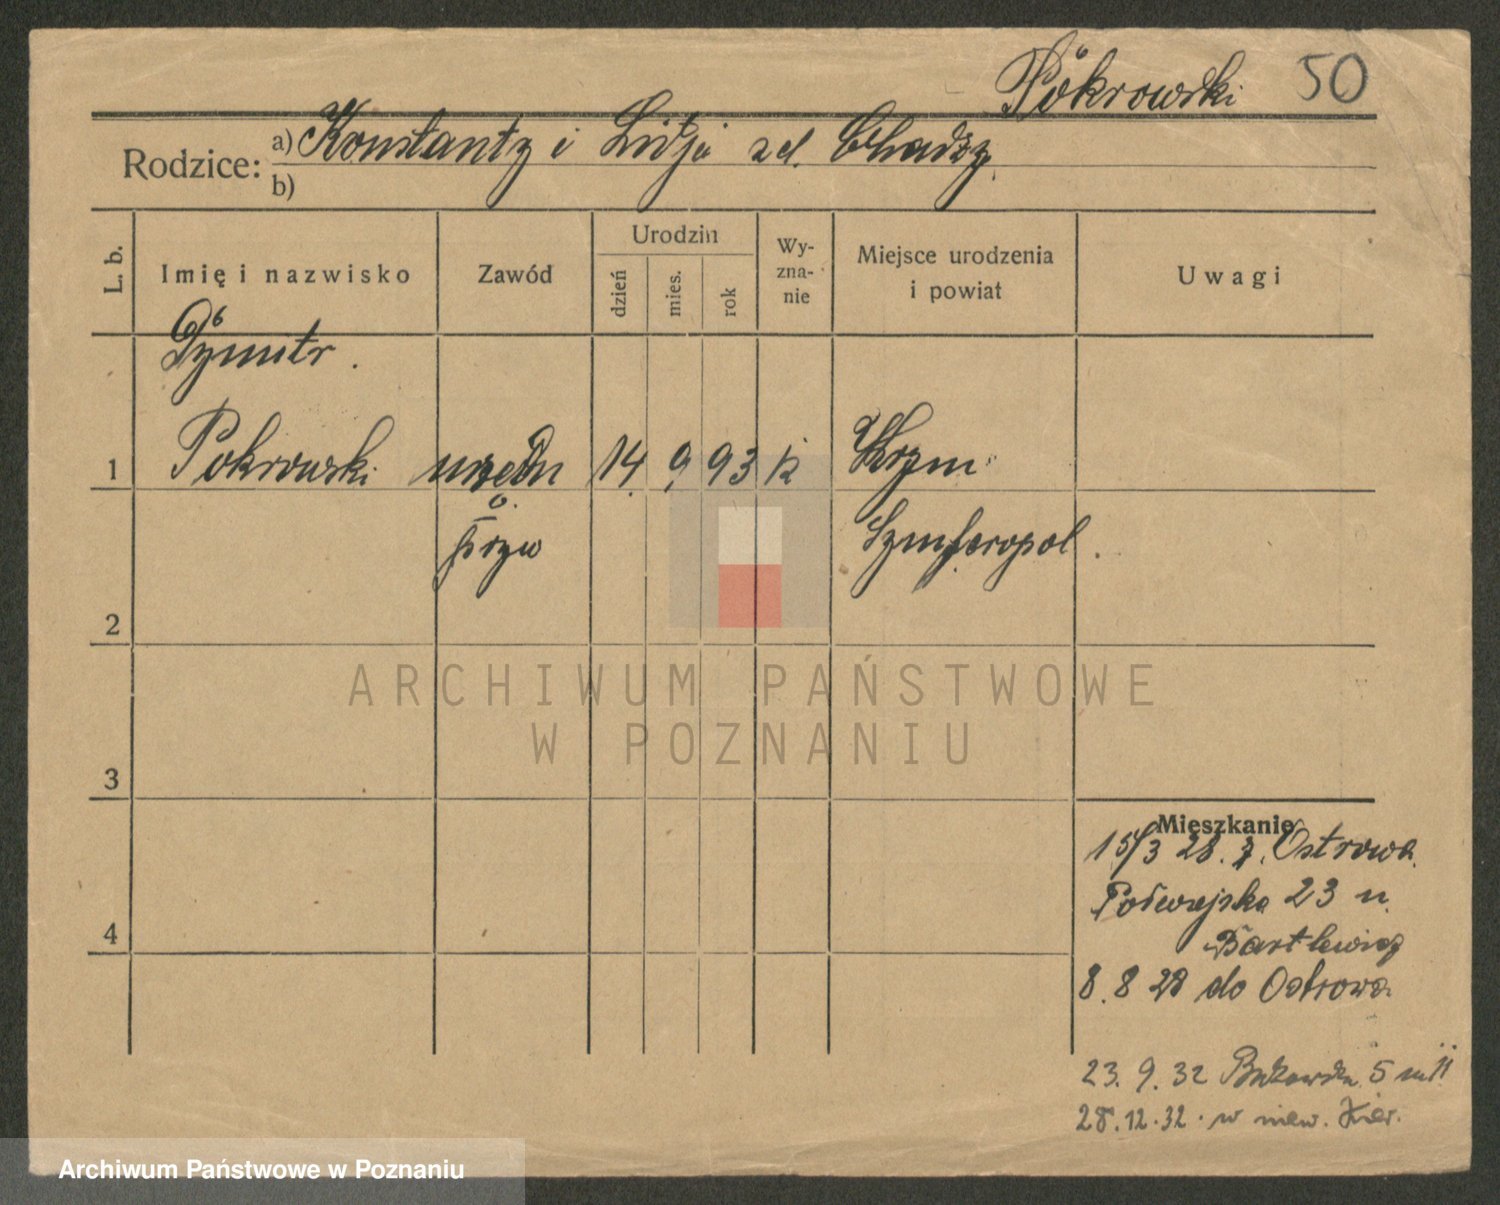 Pokrowski 50
Rodzice: a) Konstanty i Lidja zd. Chadzy
b)
L. b. Imię i nazwisko Zawód Urodzin dzień mies. rok Wy-zna-nie Miejsce urodzenia i powiat Uwagi
Dymitr.
1 Pokrowski urzędn 14 9 93 k Krym
pryw Symferopol.
2
ARCHIWUM PAŃSTWOWE
W POZNANIU
3
Mieszkanie
15/3 28. z. Ostrowa
23 n.
4 Bartlewicz
8.8 28 do Ostrowa
23. 9. 32 Bukowska 5 m 11
28.12.32. w niew.
Archiwum Państwowe w Poznaniu